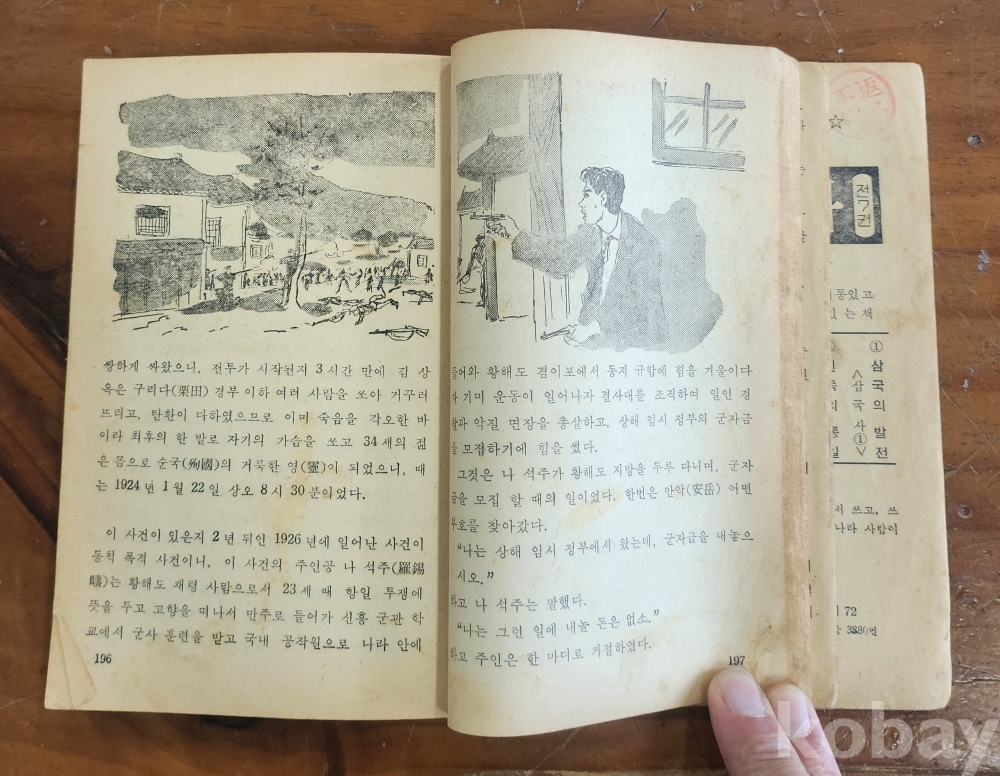 쌍하게 싸왔으니, 전투가 시작된지 3 시간 만에 김 상
옥은 구리다(栗田) 경부 이하 여러 사람을 쏘아 거꾸러
뜨리고, 탄환이 다하였으므로 이미 죽음을 각오한 바
이라 최후의 한 발로 자기의 가슴을 쏘고 34 세의 젊
은 몸으로 순국(殉國)의 거룩한 영(靈)이 되었으니, 때
는 1924 년 1 월 22 일 상오 8 시 30 분이었다.
이 사건이 있은지 2 년 뒤인 1926 년에 일어난 사건이
동척 폭격 사건이니, 이 사건의 주인공 나 석주(羅錫
疇)는 황해도 재령 사람으로서 23 세 때 항일 투쟁에
뜻을 두고 고향을 떠나서 만주로 들어가 신흥 군관 학
교에서 군사 훈련을 받고 국내 공작원으로 나라 안에
196
들어와 황해도 겸이포에서 동지 규합에 힘을 기울이다
가 기미 운동이 일어나자 결사대를 조직하여 일인 경
찰과 악질 면장을 총살하고, 상해 임시 정부의 군자금
을 모집하기에 힘을 썼다.
그것은 나 석주가 황해도 지방을 두루 다니며, 군자
금을 모집 할 때의 일이었다. 한번은 안악(安岳) 어떤
부호를 찾아갔다.
"나는 상해 임시 정부에서 왔는데, 군자금을 내놓으
시오."
하고 나 석주는 말했다.
"나는 그런 일에 내놀 돈은 없소."
하고 주인은 한 마디로 거절하였다.
197
返
☆
전7권
있고
있는책
①삼국의 발전
<삼국사①>
서 쓰고, 쓰
나라 사람이
72
3886번
kobay